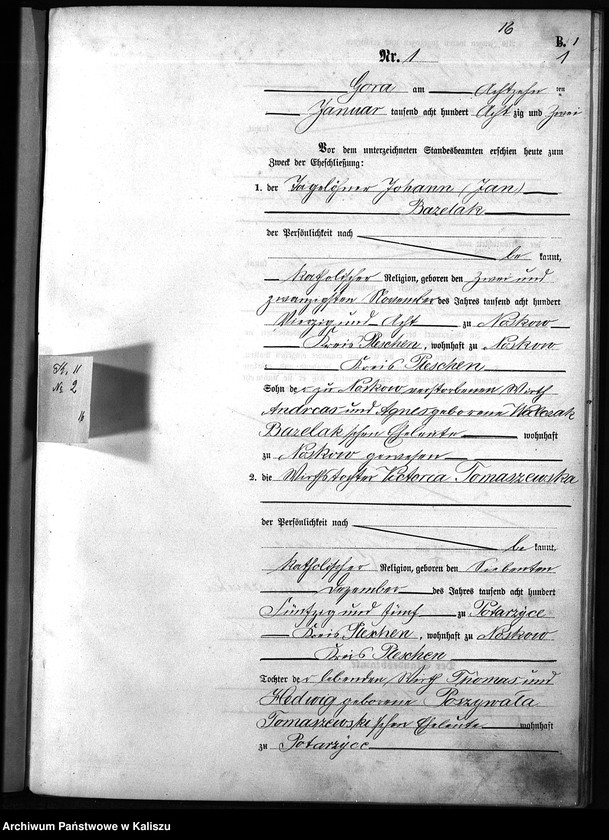 16
B. 1
Nr. 1 1
Gora am Achtzehn ten
Januar tausend acht hundert Acht zig und Zwei
Vor dem unterzeichneten Standesbeamten erschien heute zum
Zweck der Eheschließung:
1. der Tagelöhner Johann (Jan)
Bazelak
der Persönlichkeit nach
be kannt,
katholischer Religion, geboren den zwei und
zwanzigsten November des Jahres tausend acht hundert
Vierzig und Acht zu Noskow
Kreis Pleschen, wohnhaft zu Noskow
Kreis Pleschen
Sohn der zu Noskow verstorbenen Wirth
Andreas und Agnes geborene Walczak
Bazelak'schen Eheleute wohnhaft
zu Noskow gewesen
2. die Wirthstochter Victoria Tomaszewska
der Persönlichkeit nach
be kannt,
katholischer Religion, geboren den Siebenten
Dezember des Jahres tausend acht hundert
Fünfzig und fünf zu Potarzyce
Kreis Pleschen, wohnhaft zu Noskow
Kreis Pleschen
Tochter der lebenden Wirth Thomas und
Hedwig geborene Poszywała
Tomaszewski'schen Eheleute wohnhaft
zu Potarzyce
No 2
16
Archiwum Państwowe w Kaliszu